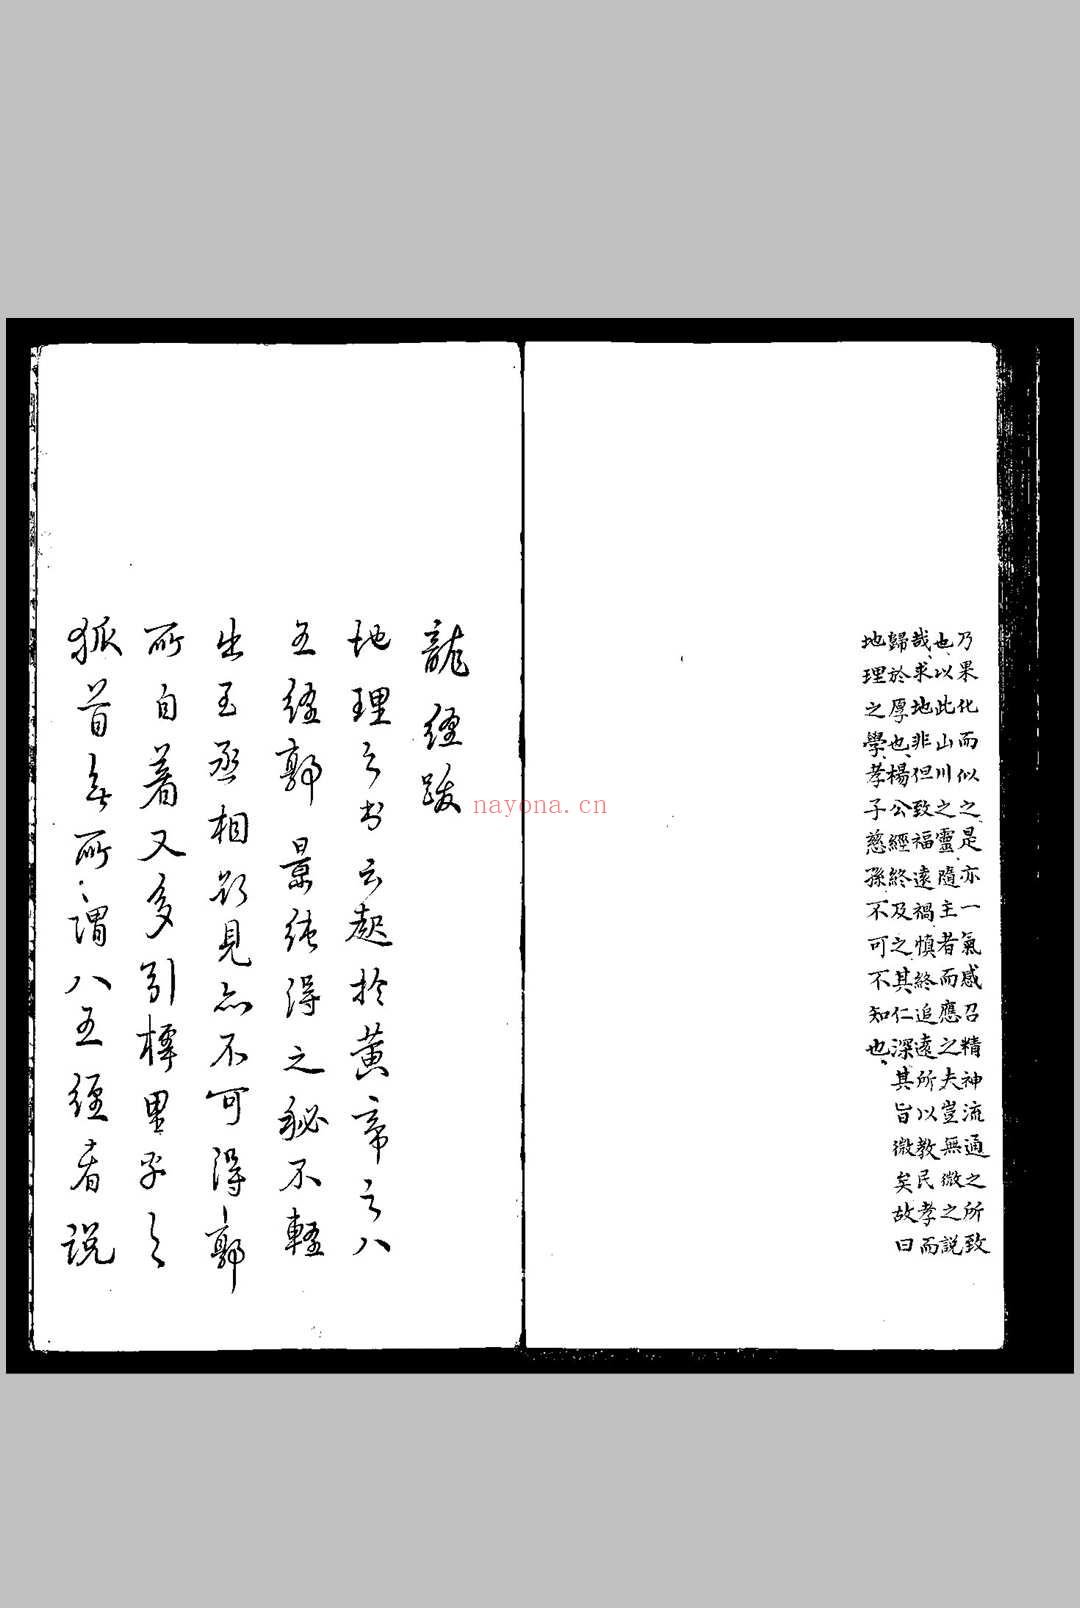 乃果化而似之是亦一氣感召精神流通之所致
也以此山川之靈隨主者而應之夫豈無微之說
哉求地非但致福遠禍慎終追遠所以教民孝而
歸於厚也楊公經終及之其仁深其旨微矣故曰
地理之學孝子慈孫不可不知也
龍經跋
地理之书云起於黃帝之八
五經郭景純得之秘不輕
出王丞相欲見亦不可得郭
所自著又多引樗里子之
狐首無所謂八五經者說
nayona.cn